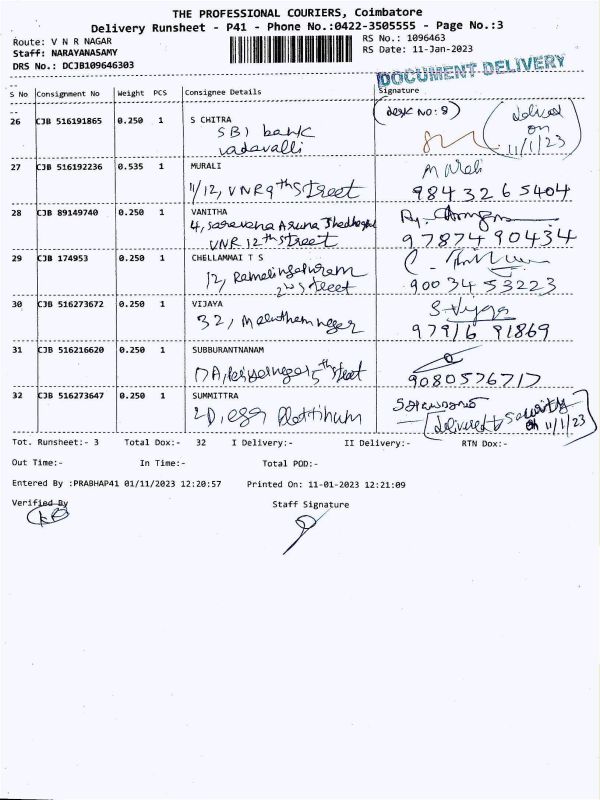 THE PROFESSIONAL COURIERS, Coimbatore
Delivery Runsheet - P41 - Phone No.:0422-3505555 - Page No.:3
Route: V N R NAGAR
RS No.: 1096463
Staff: NARAYANASAMY
RS Date: 11-Jan-2023
DRS No.: DCJB109646303
DOCUMENT DELIVERY
S No Consignment No Weight PCS Consignee Details Signature
26 CJB 516191865 0.250 1 S CHITRA
SBI bank
vadavalli
desk no: 8
delived
on
11/1/23
27 CJB 516192236 0.535 1 MURALI
11/12, VNR 9th Street
Murali
98432 65404
28 CJB 89149740 0.250 1 VANITHA
4, saravana Aruna
VNR 12th street
97874 90434
29 CJB 174953 0.250 1 CHELLAMMAI T S
12, Ramalingapuram
2nd street
90034 53223
30 CJB 516273672 0.250 1 VIJAYA
32, Maruthamnagar
97916 91869
31 CJB 516216620 0.250 1 SUBBURANTNANAM
5th street
9080576717
32 CJB 516273647 0.250 1 SUMMITTRA
delivered to security
on 11/1/23
Tot. Runsheet:- 3 Total Dox:- 32 I Delivery:- II Delivery:- RTN Dox:-
Out Time:- In Time:- Total POD:-
Entered By :PRABHAP41 01/11/2023 12:20:57 Printed On: 11-01-2023 12:21:09
Verified By Staff Signature